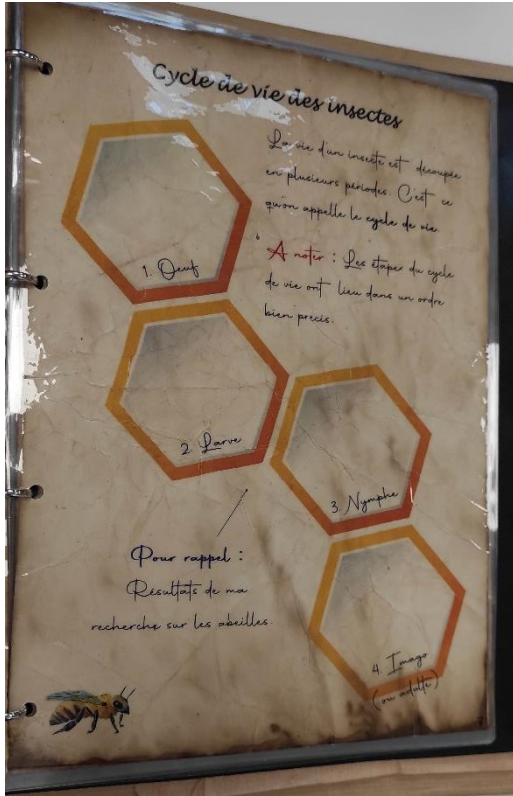 Cycle de vie des insectes
La vie d'un insecte est découpée
en plusieurs périodes. C'est ce
qu'on appelle le cycle de vie
A noter : Les étapes du cycle
de vie ont lieu dans un ordre
bien précis.
1. Oeuf
2. Larve
3. Nymphe
4. Imago
(ou adulte)
Pour rappel :
Résultats de ma
recherche sur les abeilles.